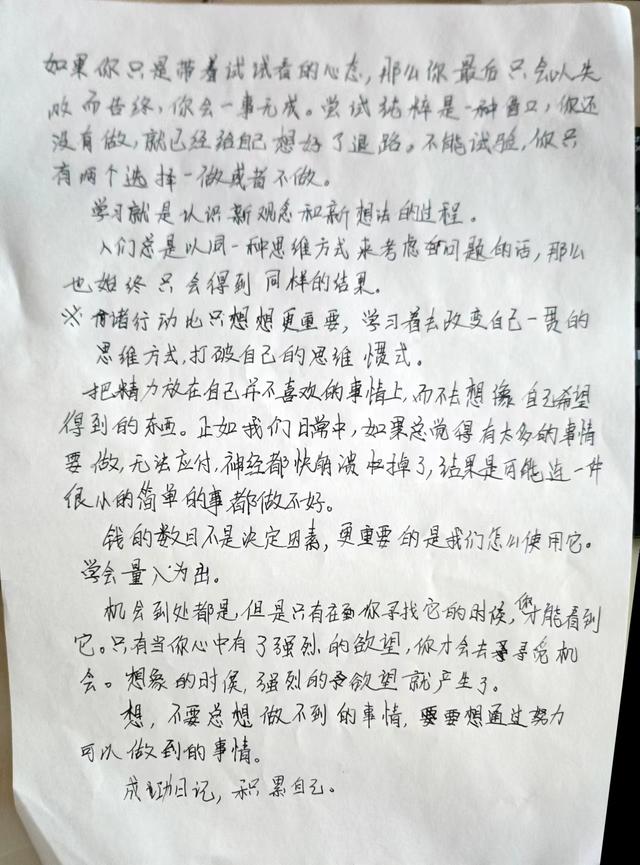 如果你只是带着试试看的心态，那么你最后只会以失
败而告终，你会一事无成。尝试纯粹是一种借口，你还
没有做，就已经给自己想好了退路。不能试验，你只
有两个选择—做或者不做。
学习就是认识新观念和新想法的过程。
人们总是以同一种思维方式来考虑问题的话，那么
也始终只会得到同样的结果。
※付诸行动比只想想更重要，学习着去改变自己一贯的
思维方式，打破自己的思维惯式。
把精力放在自己并不喜欢的事情上，而不去想像自己希望
得到的东西。正如我们日常中，如果总觉得有太多的事情
要做，无法应付，神经都快崩溃掉了，结果是可能连一件
很小的简单的事都做不好。
钱的数目不是决定因素，更重要的是我们怎么使用它。
学会量入为出。
机会到处都是，但是只有在你寻找它的时候，你才能看到
它。只有当你心中有了强烈的欲望，你才会去寻觅机
会。想象的时候，强烈的欲望就产生了。
想，不要总想做不到的事情，要想通过努力
可以做到的事情。
成功日记，积累自己。